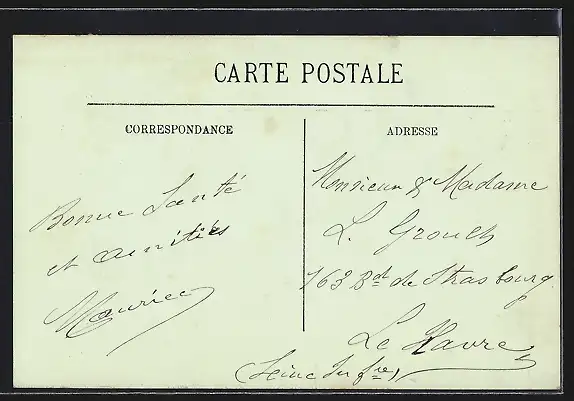 CARTE POSTALE
CORRESPONDANCE
Bonne Santé
et amitiés
Maurice
ADRESSE
Monsieur & Madame
L. Grouch
163 Bd de Strasbourg.
Le Havre
(Seine Infre)